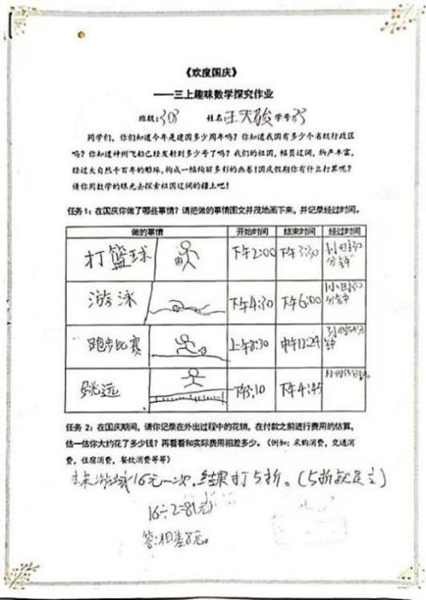 《欢度国庆》
——三上趣味数学探究作业
班级：308 姓名：王天骏 学号：35
同学们，你们知道今年是建国多少周年吗？你知道我国有多少个省级行政区
吗？你知道神州飞船已经发射到多少号了吗？我们的祖国，幅员辽阔，物产丰富，
经过大自然千百年的雕琢，构成一幅绚丽多彩的画卷！国庆假期你有什么打算呢？
请你用数学的眼光去探索祖国辽阔的疆土吧！
任务1：在国庆你做了哪些事情？请把做的事情图文并茂地画下来，并记录经过时间。
做的事情 开始时间 结束时间 经过时间
打篮球 下午2:00 下午3:30 1小时30分钟
游泳 下午4:30 下午6:00 1小时30分钟
跑步比赛 上午8:30
跳远 下午4:45
任务2：在国庆期间，请你记录在外出过程中的花销，在付款之前进行费用的估算，
估一估你大约花了多少钱？再看看和实际费用相差多少。（例如：采购消费，交通消
费，住宿消费，餐饮消费等等）
游泳16元一次，结果打5折。（5折就是÷2）
16÷2=8(元)
答：相差8元。